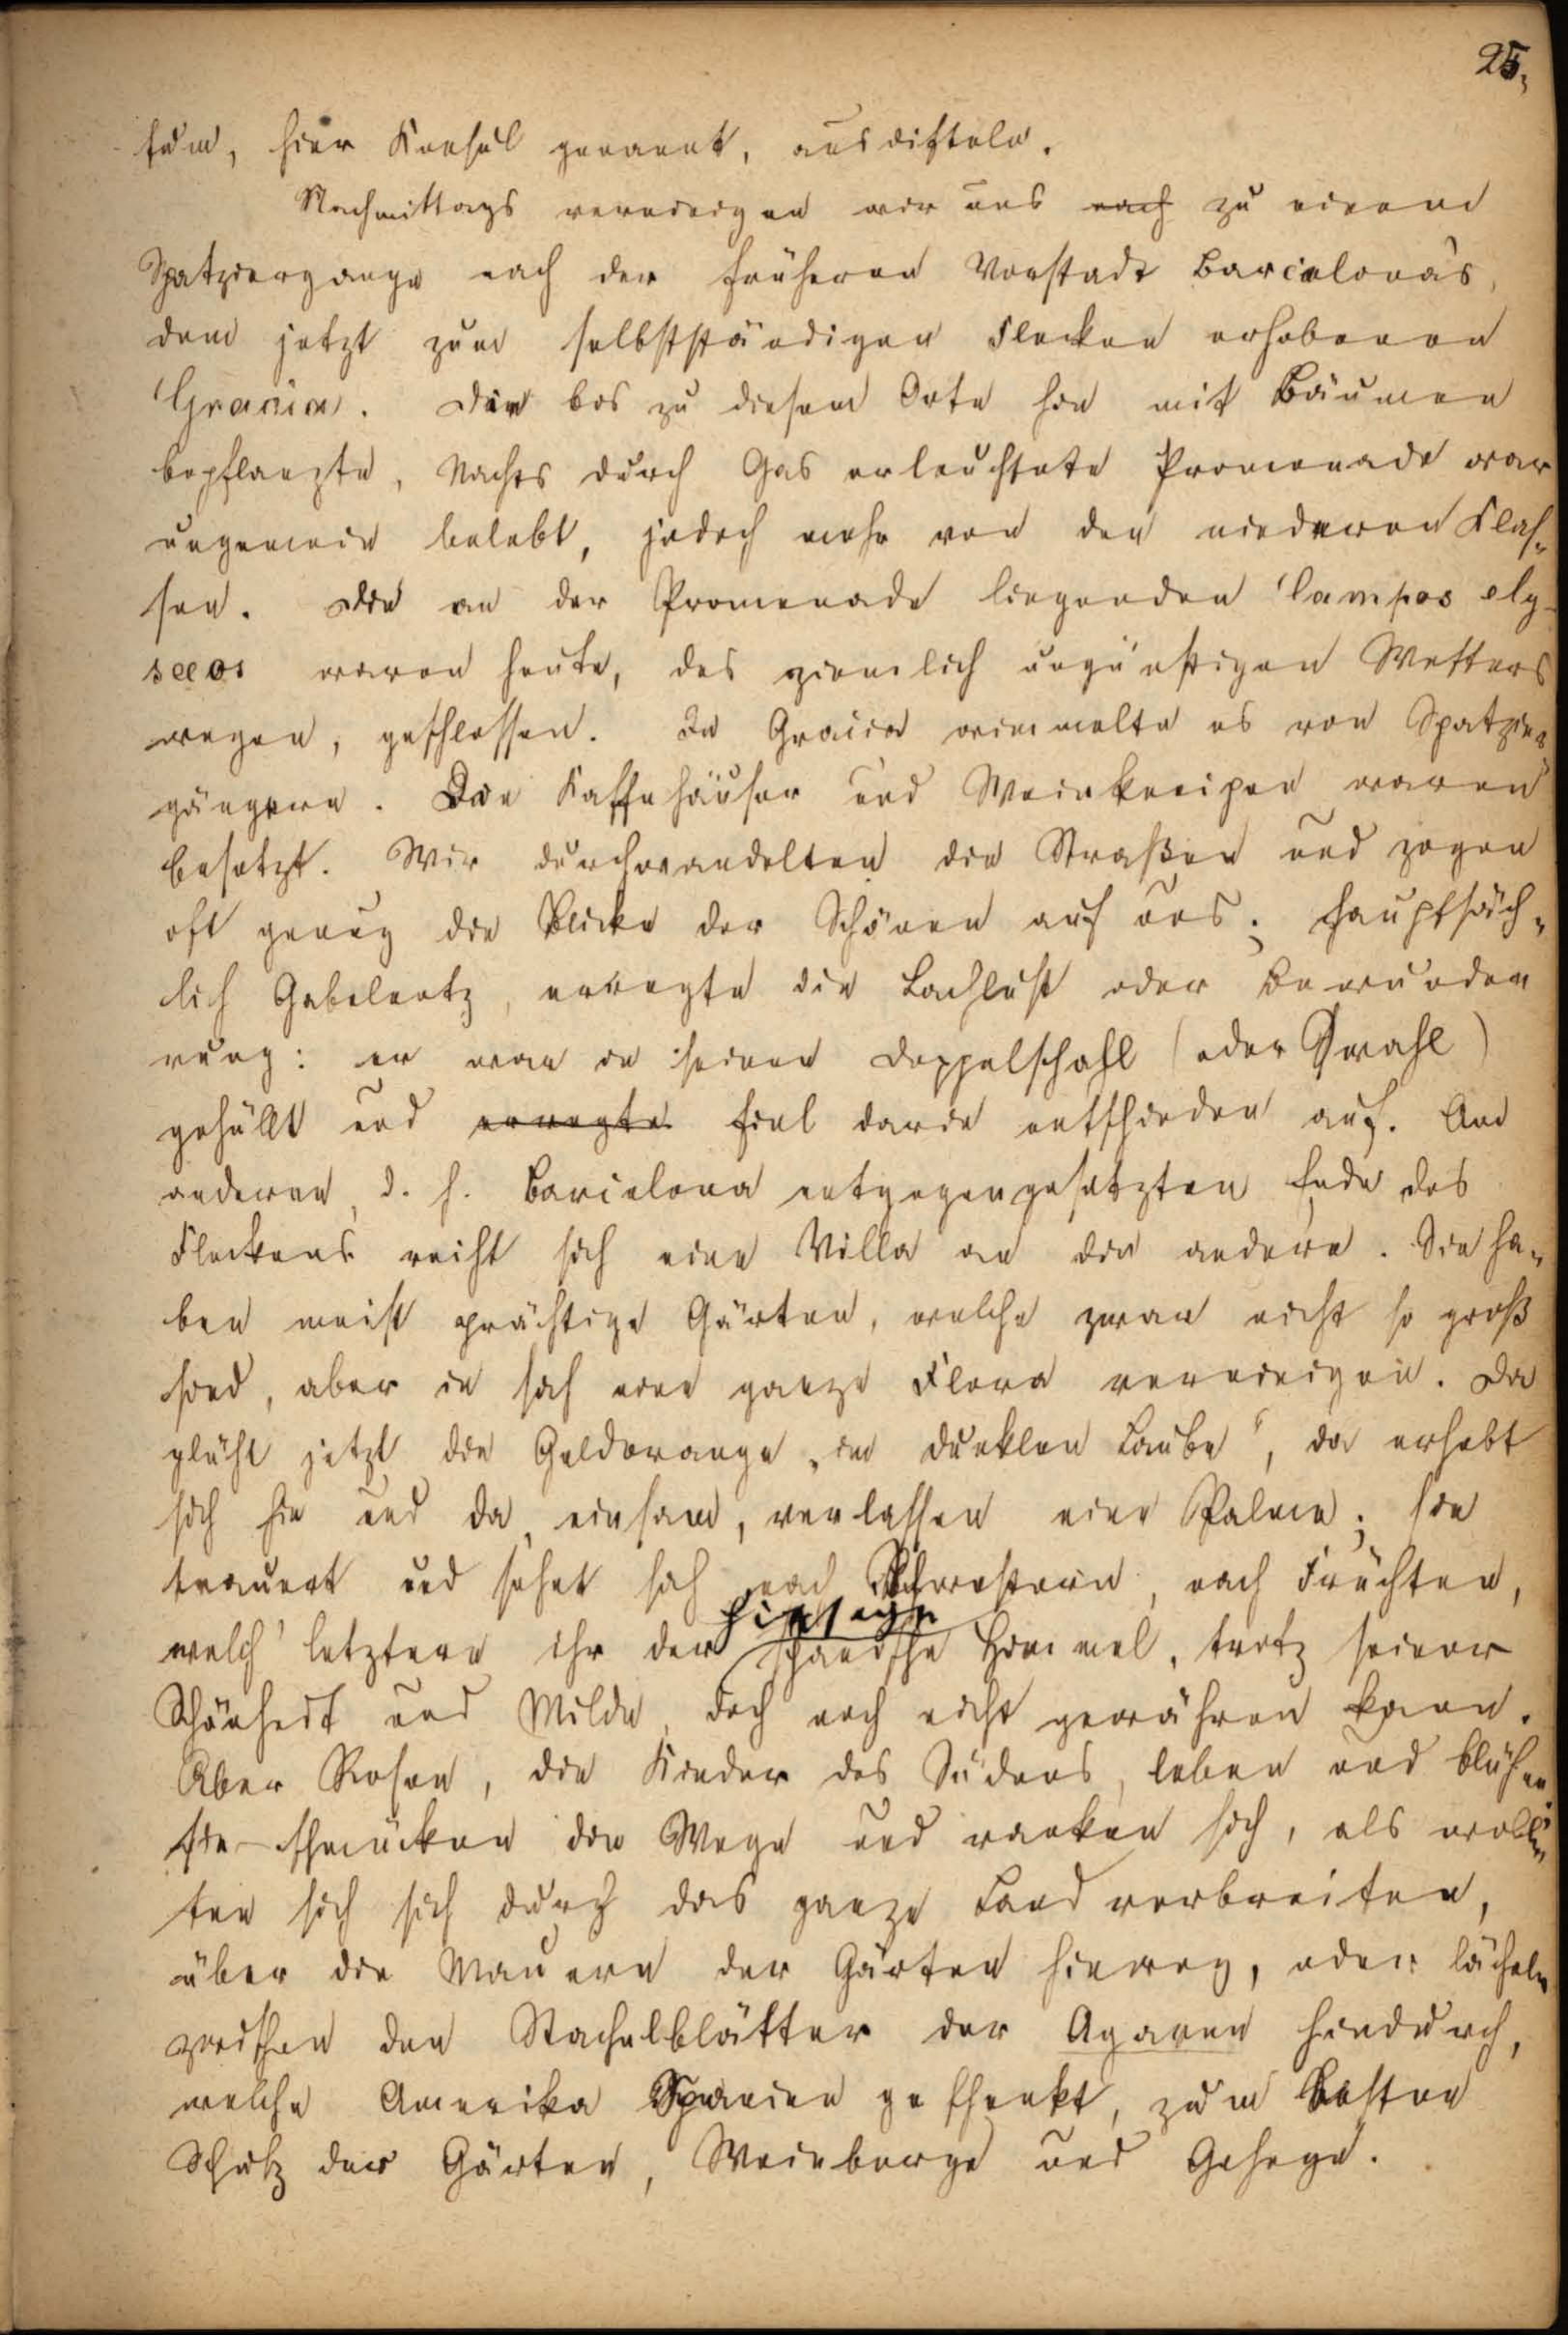 25.
sum, hier Konsul genannt, ausdifteln.
Nachmittags vereinigen wir uns nach zu einem
Spatziergange nach der früheren Vorstadt Barcelona's,
dem jetzt zum selbstständigen Flecken erhobenen
Gracia. Die bis zu diesem Orte hin mit Bäumen
bepflanzte, Nachts durch Gas erleuchtete Promenade war
ungemein belebt, jedoch mehr von den niederen Klas-
sen. Die an der Promenade liegenden Campos ely-
seeos waren heute, des ziemlich ungünstigen Wetters
wegen, geschlossen. In Gracia wimmelte es von Spatzier
gängern. Die Kaffehäuser und Weinkneipen waren
besetzt. Wir durchwandelten die Straßen und zogen
oft genug die Blicke der Schönen auf uns; hauptsäch-
lich Gabelentz, erregte die Lachlust oder Bewunder
rung: er war in seinen Doppelschahl (oder Qwahl)
gehüllt und erregte fiel darin entschieden auf. Am
anderen, d. h. Barcelona entgegengesetzten Ende des
Fleckens reiht sich eine Villa an die andere. Sie ha-
ben meist prächtige Gärten, welche zwar nicht so groß
sind, aber in sich eine ganze Flora vereinigen. Da
glüht jetzt die Goldorange „im dunklen Laube", da erhebt
sich hie und da, einsam, verlassen eine Palme; sie
trauert und sehnt sich nach Schwestern, nach Früchten,
hiesige
welch' letztere ihr der spanische Himmel, trotz seiner
Schönheit und Milde, doch noch nicht gewähren kann.
Aber Rosen, die Kinder des Südens, leben und blühen;
sie schmücken die Wege und ranken sich, als woll-
ten sich sich durch das ganze Land verbreiten,
über die Mauern der Gärten hinweg, oder lächeln
zwischen den Stachelblätter der Agaven hindurch,
welche Amerika Spanien geschenkt, zum besten
Schutz der Gärten, Weinberge und Gehege.